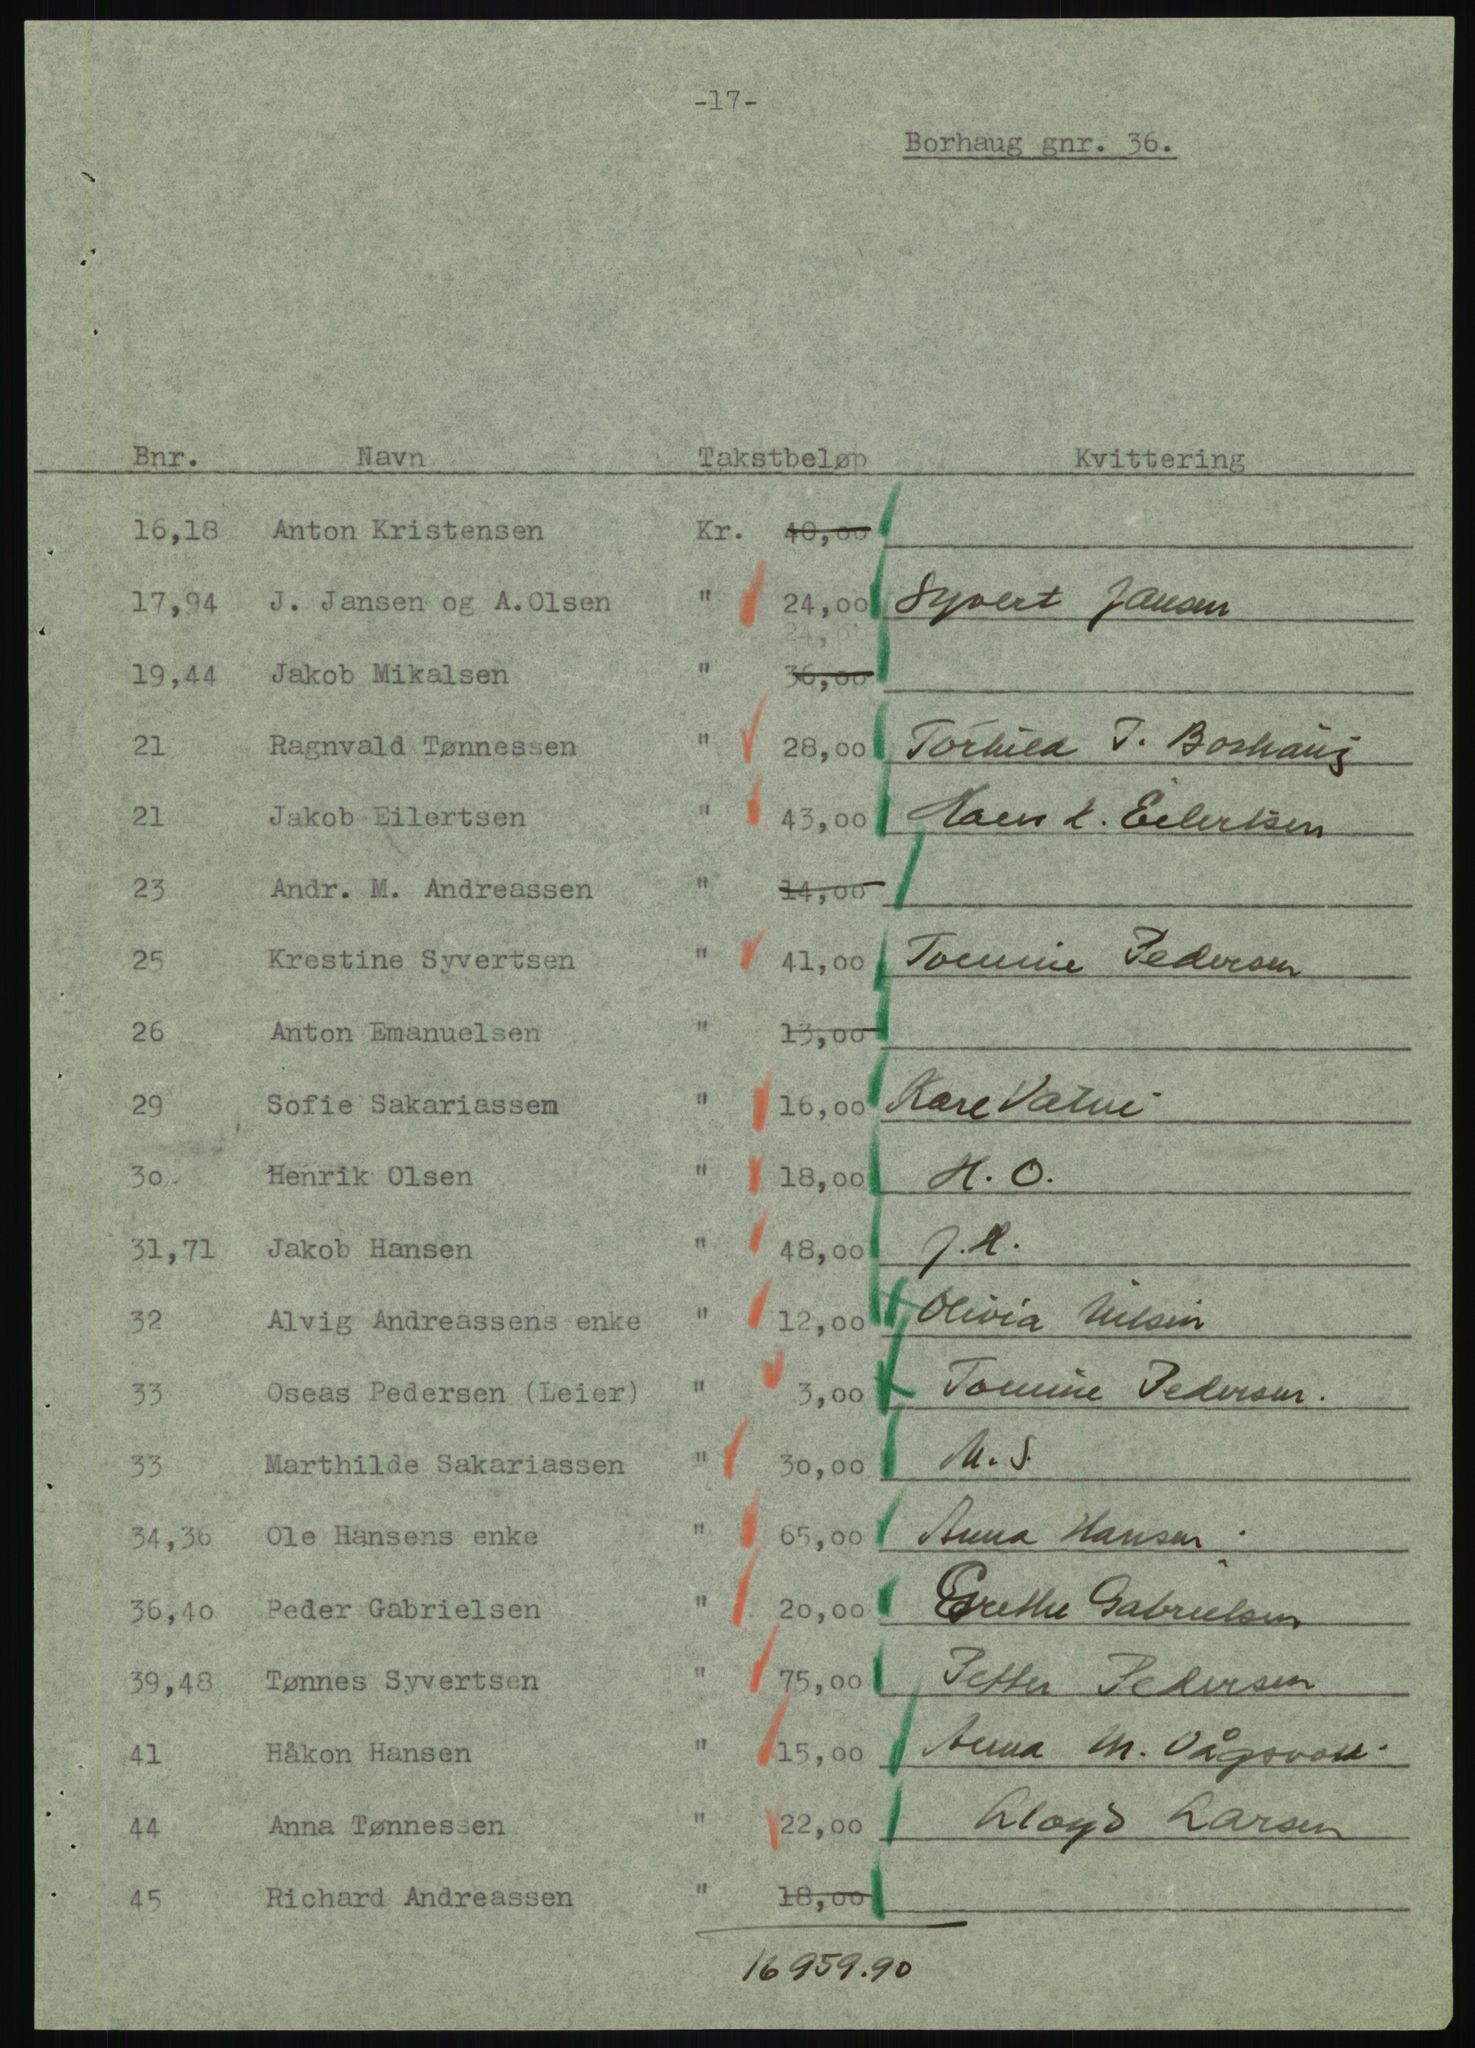 -17-
Borhaug gnr. 36.
Bnr. Navn Takstbeløp Kvittering
16,18 Anton Kristensen Kr. 40,00
17,94 J. Jansen og A.Olsen " 24,00 Syvert Jansen
24,00
19,44 Jakob Mikalsen " 36,00
21 Ragnvald Tønnessen " 28,00 Torhild T. Borhaug
21 Jakob Eilertsen " 43,00 Hans K. Eilertsen
23 Andr. M. Andreassen " 14,00
25 Krestine Syvertsen " 41,00 Tomine Pedersen
26 Anton Emanuelsen " 13,00
29 Sofie Sakariassen " 16,00 Kåre Vatne
30 Henrik Olsen " 18,00 H. O.
31,71 Jakob Hansen " 48,00 J. H.
32 Alvig Andreassens enke " 12,00 Olivia Nilsen
33 Oseas Pedersen (Leier) " 3,00 Tomine Pedersen.
33 Marthilde Sakariassen " 30,00 M. S.
34,36 Ole Hansens enke " 65,00 Anna Hansen
36,40 Peder Gabrielsen " 20,00 Grethe Gabrielsen
39,48 Tønnes Syvertsen " 75,00 Petter Pedersen
41 Håkon Hansen " 15,00 Anna M. Vågsvoll
44 Anna Tønnessen " 22,00 Lloyd Larsen
45 Richard Andreassen " 18,00
16959.90